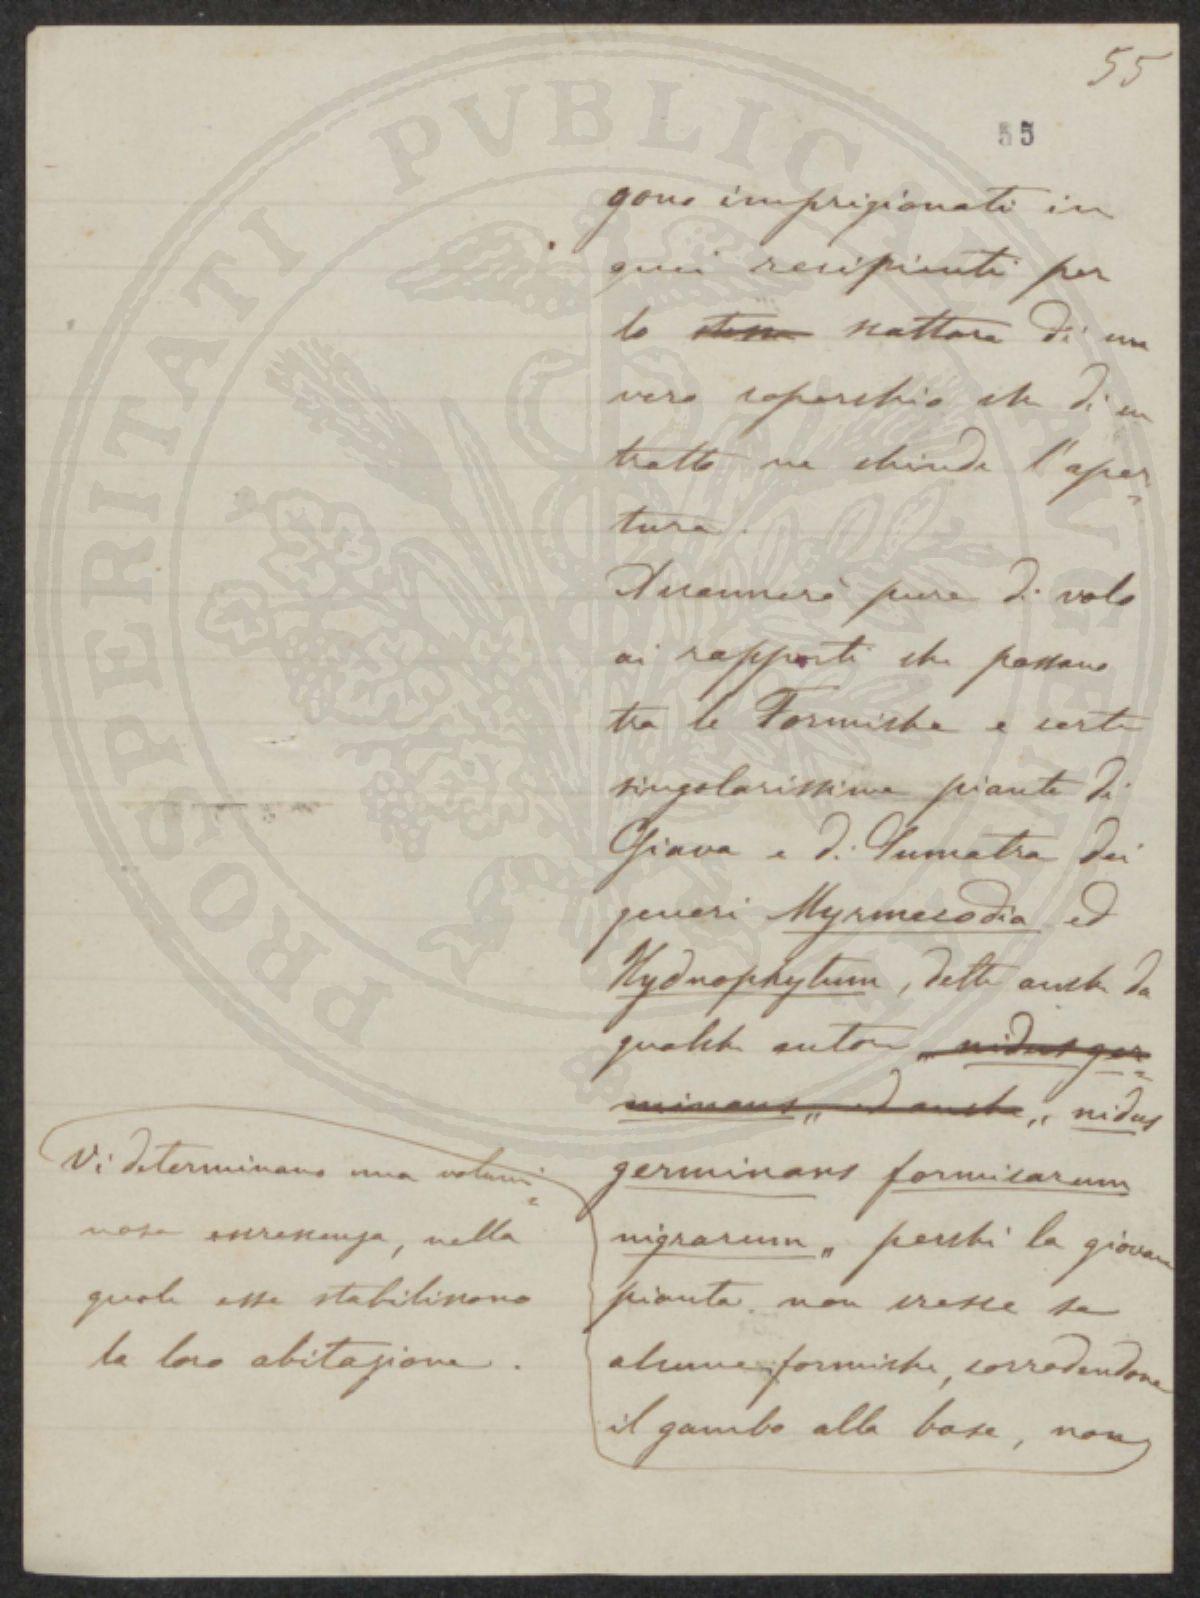 55
55
gono imprigionati in
quei recipienti per
lo stesso scattare di un
vero coperchio che di un
tratto ne chiude l'aper-
tura.
Accennerò pure di volo
ai rapporti che passano
tra le Formiche e certe
singolarissime piante di
Giava e di Sumatra dei
generi Myrmecodia ed
Hydnophytum, dette anche da
qualche autore „nidus ger-
minans„ ed anche „nidus
germinans formicarum
nigrarum„ perchè la giovane
pianta non cresce se
alcune formiche, corrodendone
il gambo alla base, non
vi determinano una volumi-
nosa escrescenza, nella
quale esse stabiliscono
la loro abitazione.
PROSPERITATI PVBLICAE AVGENDAE